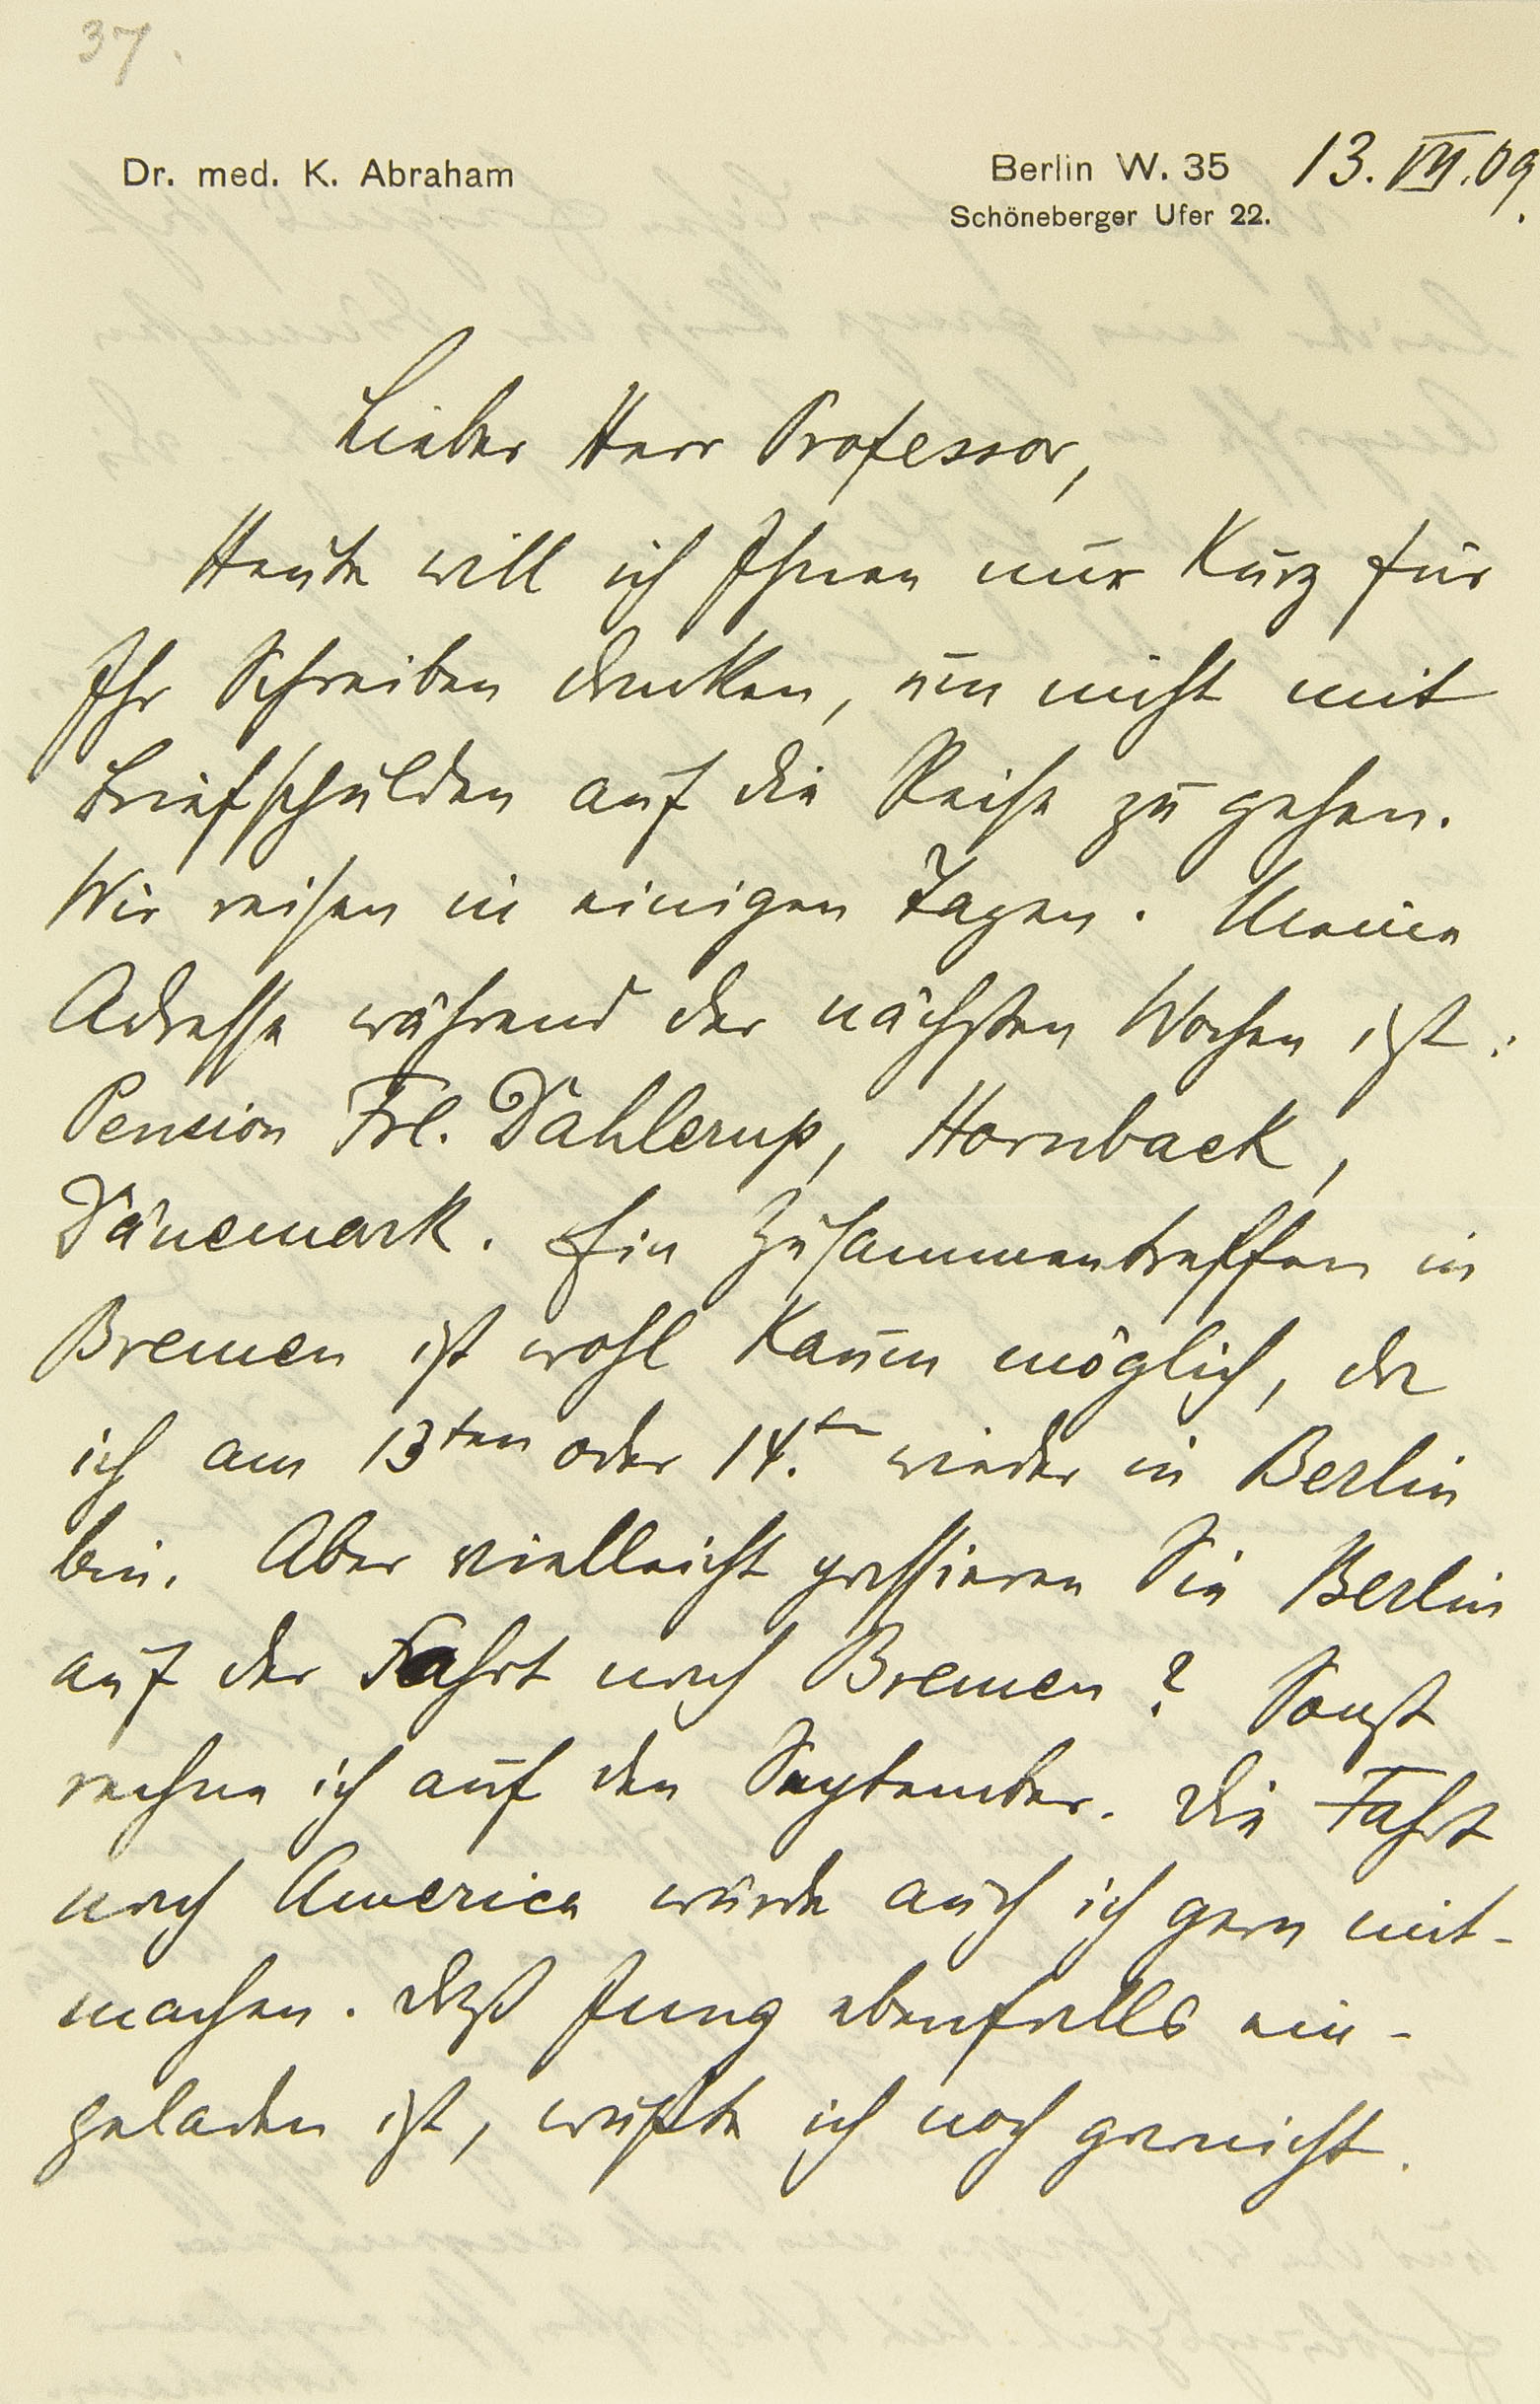 37.
Dr. med. K. Abraham
Berlin W. 35 13. VII. 09.
Schöneberger Ufer 22.
Lieber Herr Professor,
Heute will ich Ihnen nur kurz für
Ihr Schreiben danken, um nicht mit
Briefschulden auf die Reise zu gehen.
Wir reisen in einigen Tagen. Meine
Adresse während der nächsten Wochen ist:
Pension Frl. Dahlerup, Hornback,
Dänemark. Ein Zusammentreffen in
Bremen ist wohl kaum möglich, da
ich am 13ten oder 14.ten wieder in Berlin
bin. Aber vielleicht passieren Sie Berlin
auf der Fahrt nach Bremen? Sonst
rechne ich auf den September. Die Fahrt
nach America würde auch ich gern mit-
machen. Daß Jung ebenfalls ein-
geladen ist, wußte ich noch garnicht.